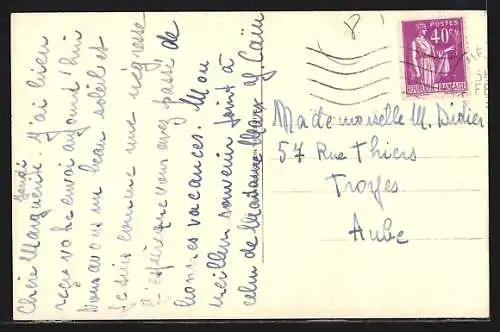 Jeudi
Chère Marguerite. J'ai bien
reçu votre envoi aujourd'hui
Nous avons un beau soleil et
je suis comme une négresse
J'espère que vous avez passé de
bonnes vacances. Mon
meilleur souvenir joint à
celui de Madame Marx
POSTES
40c
REPUBLIQUE FRANÇAISE
Mademoiselle M. Didier
57 Rue Thiers
Troyes
Aube